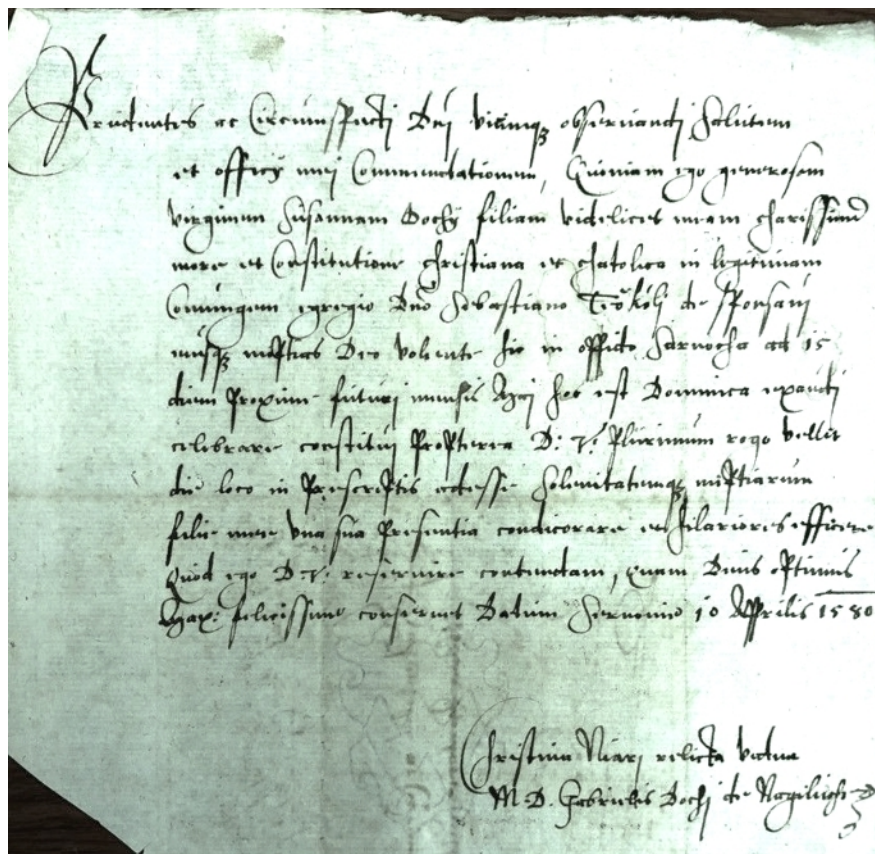 Prudentes ac Circumspecti Dnj vicinique observandj Salutem
et officij mej Commendationem, Quoniam ego generosam
virginem Susannam Dochÿ filiam videlicet meam charissimā
more et Constitutione christiana et chatolica in legitimam
Coniungem egregio Dnō Sebastiano Teökölj de sponsavj
nuptias Deo volente hic in oppido Sarnocha ad 15
diem proxime futurj mensis Maj hoc est Dominica exaudj
celebrare constituj Propterea D: V: Plurimum rogo vellit
die loco in Prescriptis adesse Solenitatemque nuptiarum
filie mee una sua Presentia condicorare et hilariores efficere
Quod ego D: V: reservire contendam, quam Deus optimus
Max: felicissime conservet Datum 10 Apprilis 1580
Christina Niarj relicta vidua
M. D. Gabrielis Dochj de